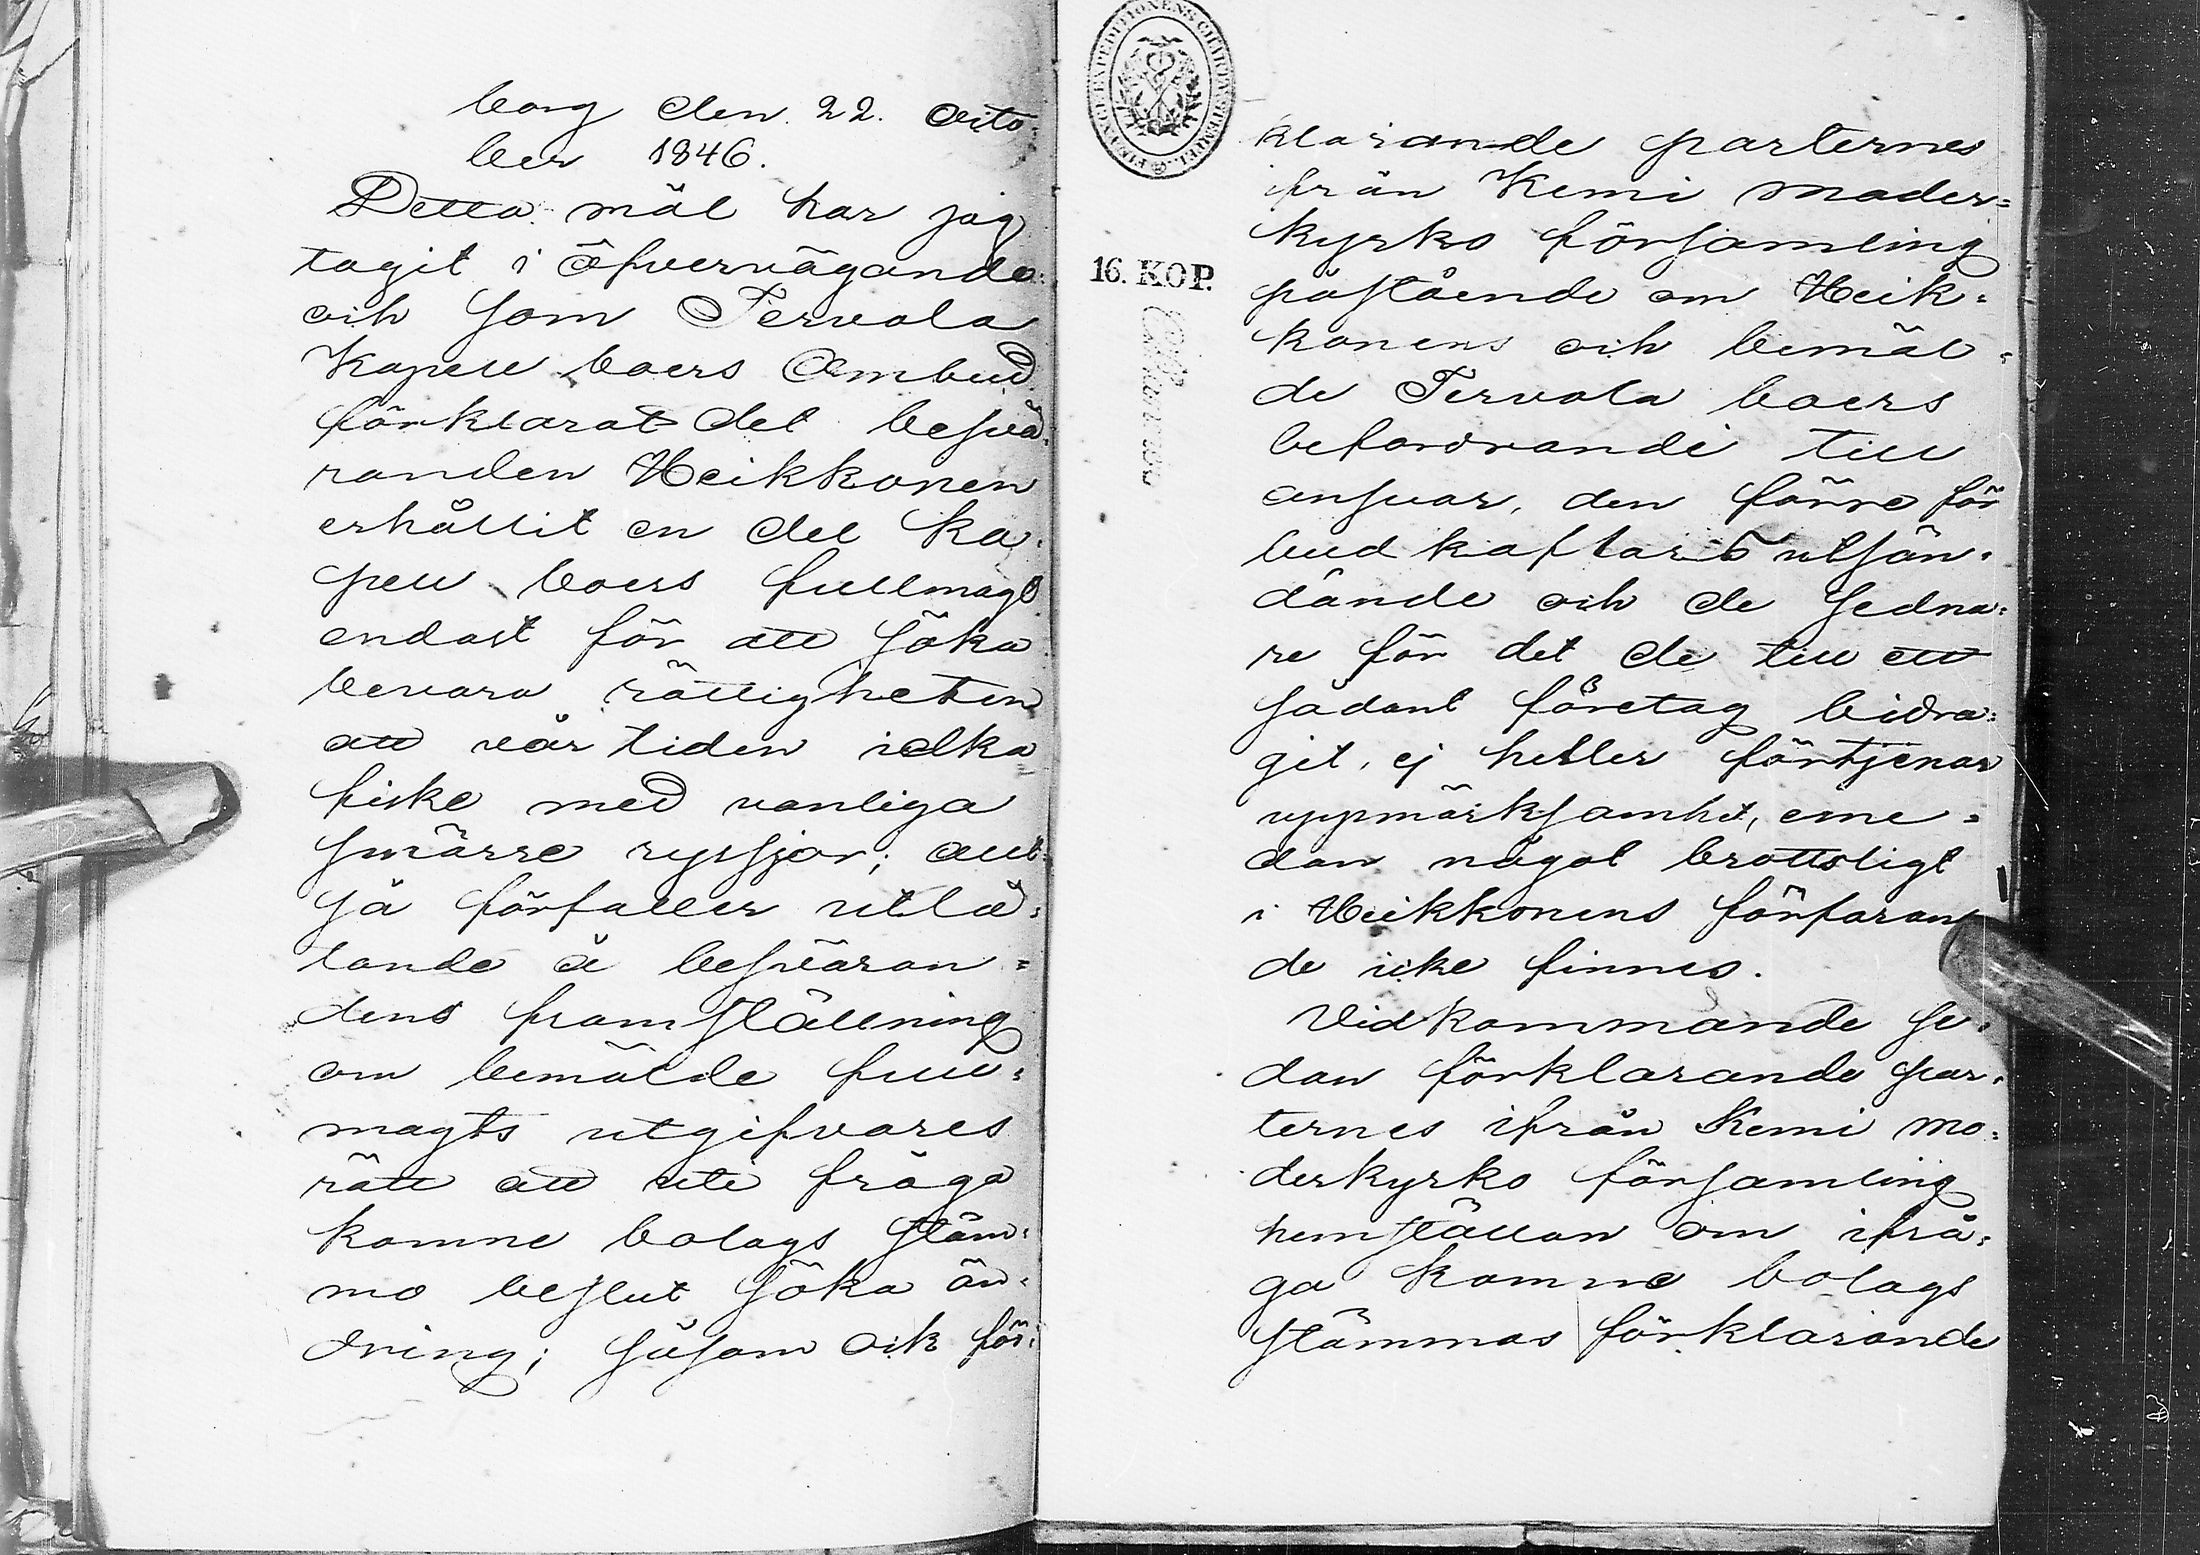 borg den 22. Octo-
ber 1846.
Detta mål har jag
tagit i öfvervägande:
och som Tervola
Kapell boers Ombud
förklarat det besvä-
randen Heikkonen
erhållit en del Ka-
pell boers fullmagt
endast för att söka
bevara rättigheten
att vår tiden idka
fiske med vanliga
smärre ryssjor; allt-
så förfaller utlå-
tande å besväran=
dens framställning
om bemälde full-
magts utgifvares
rätt att uti fråga
komne bolags stäm-
mo beslut söka än-
dring; såsom ock för-
FINANCE EXPEDITIONENS CHARTÆ STEMPEL
16. KOP.
klarande parternes
ifrån Kemi moder=
kyrko församling
påstående om Heik-
konens och bemäl-
de Tervola boers
befordrande till
ansvar, den förre för
bud kaflars utsän-
dände och de sedna-
re för det de till ett
sådant företag bidra-
git, ej heller förtjenar
uppmärksamhet, eme-
dan något brottsligt
i Heikkonens förfaran
de icke finnes.
Vidkommande se-
dan förklarande par-
ternes ifrån Kemi mo-
derkyrko församling
hemställan om ifrå-
ga komne bolags
stämmas förklarande